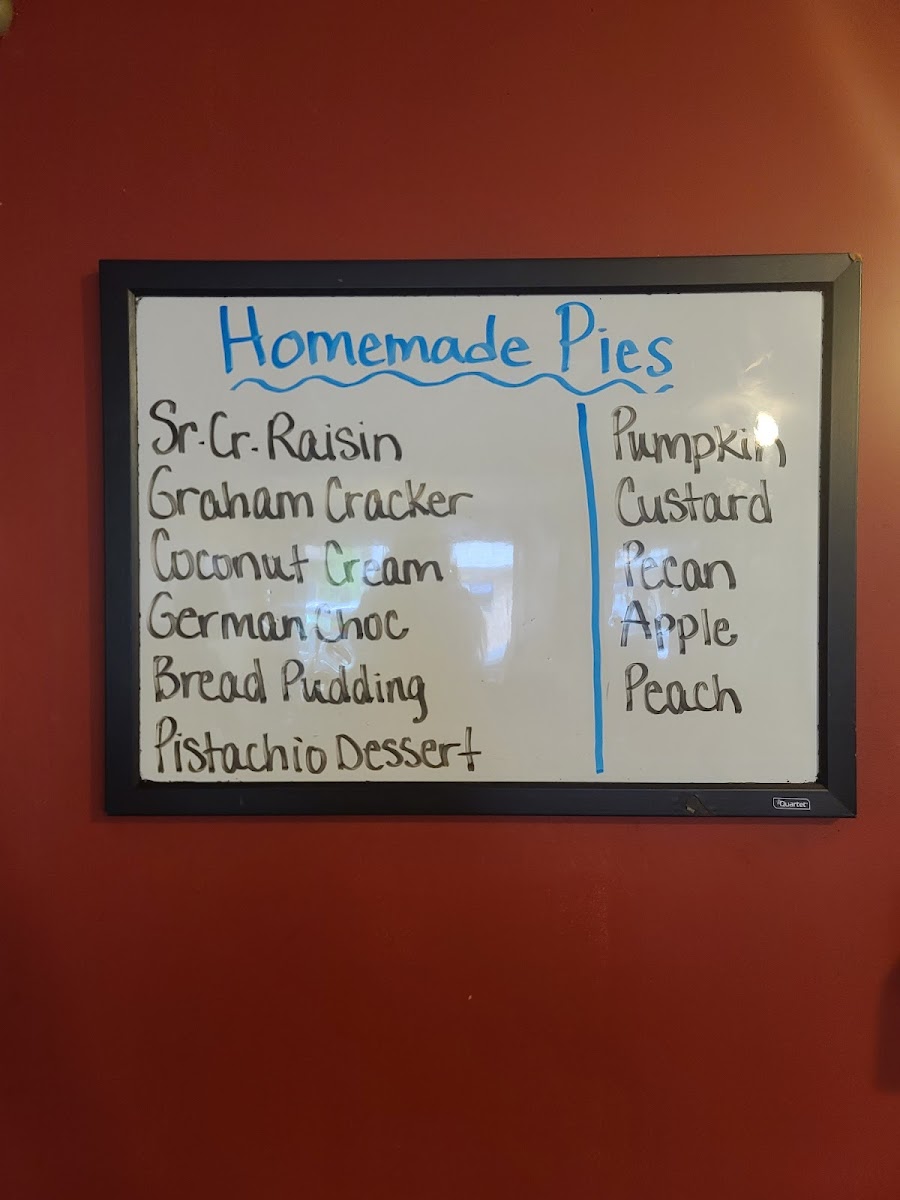 Homemade Pies
Sr. Cr. Raisin
Graham Cracker
Coconut Cream
German Choc
Bread Pudding
Pistachio Dessert
Pumpkin
Custard
Pecan
Apple
Peach
Quartet